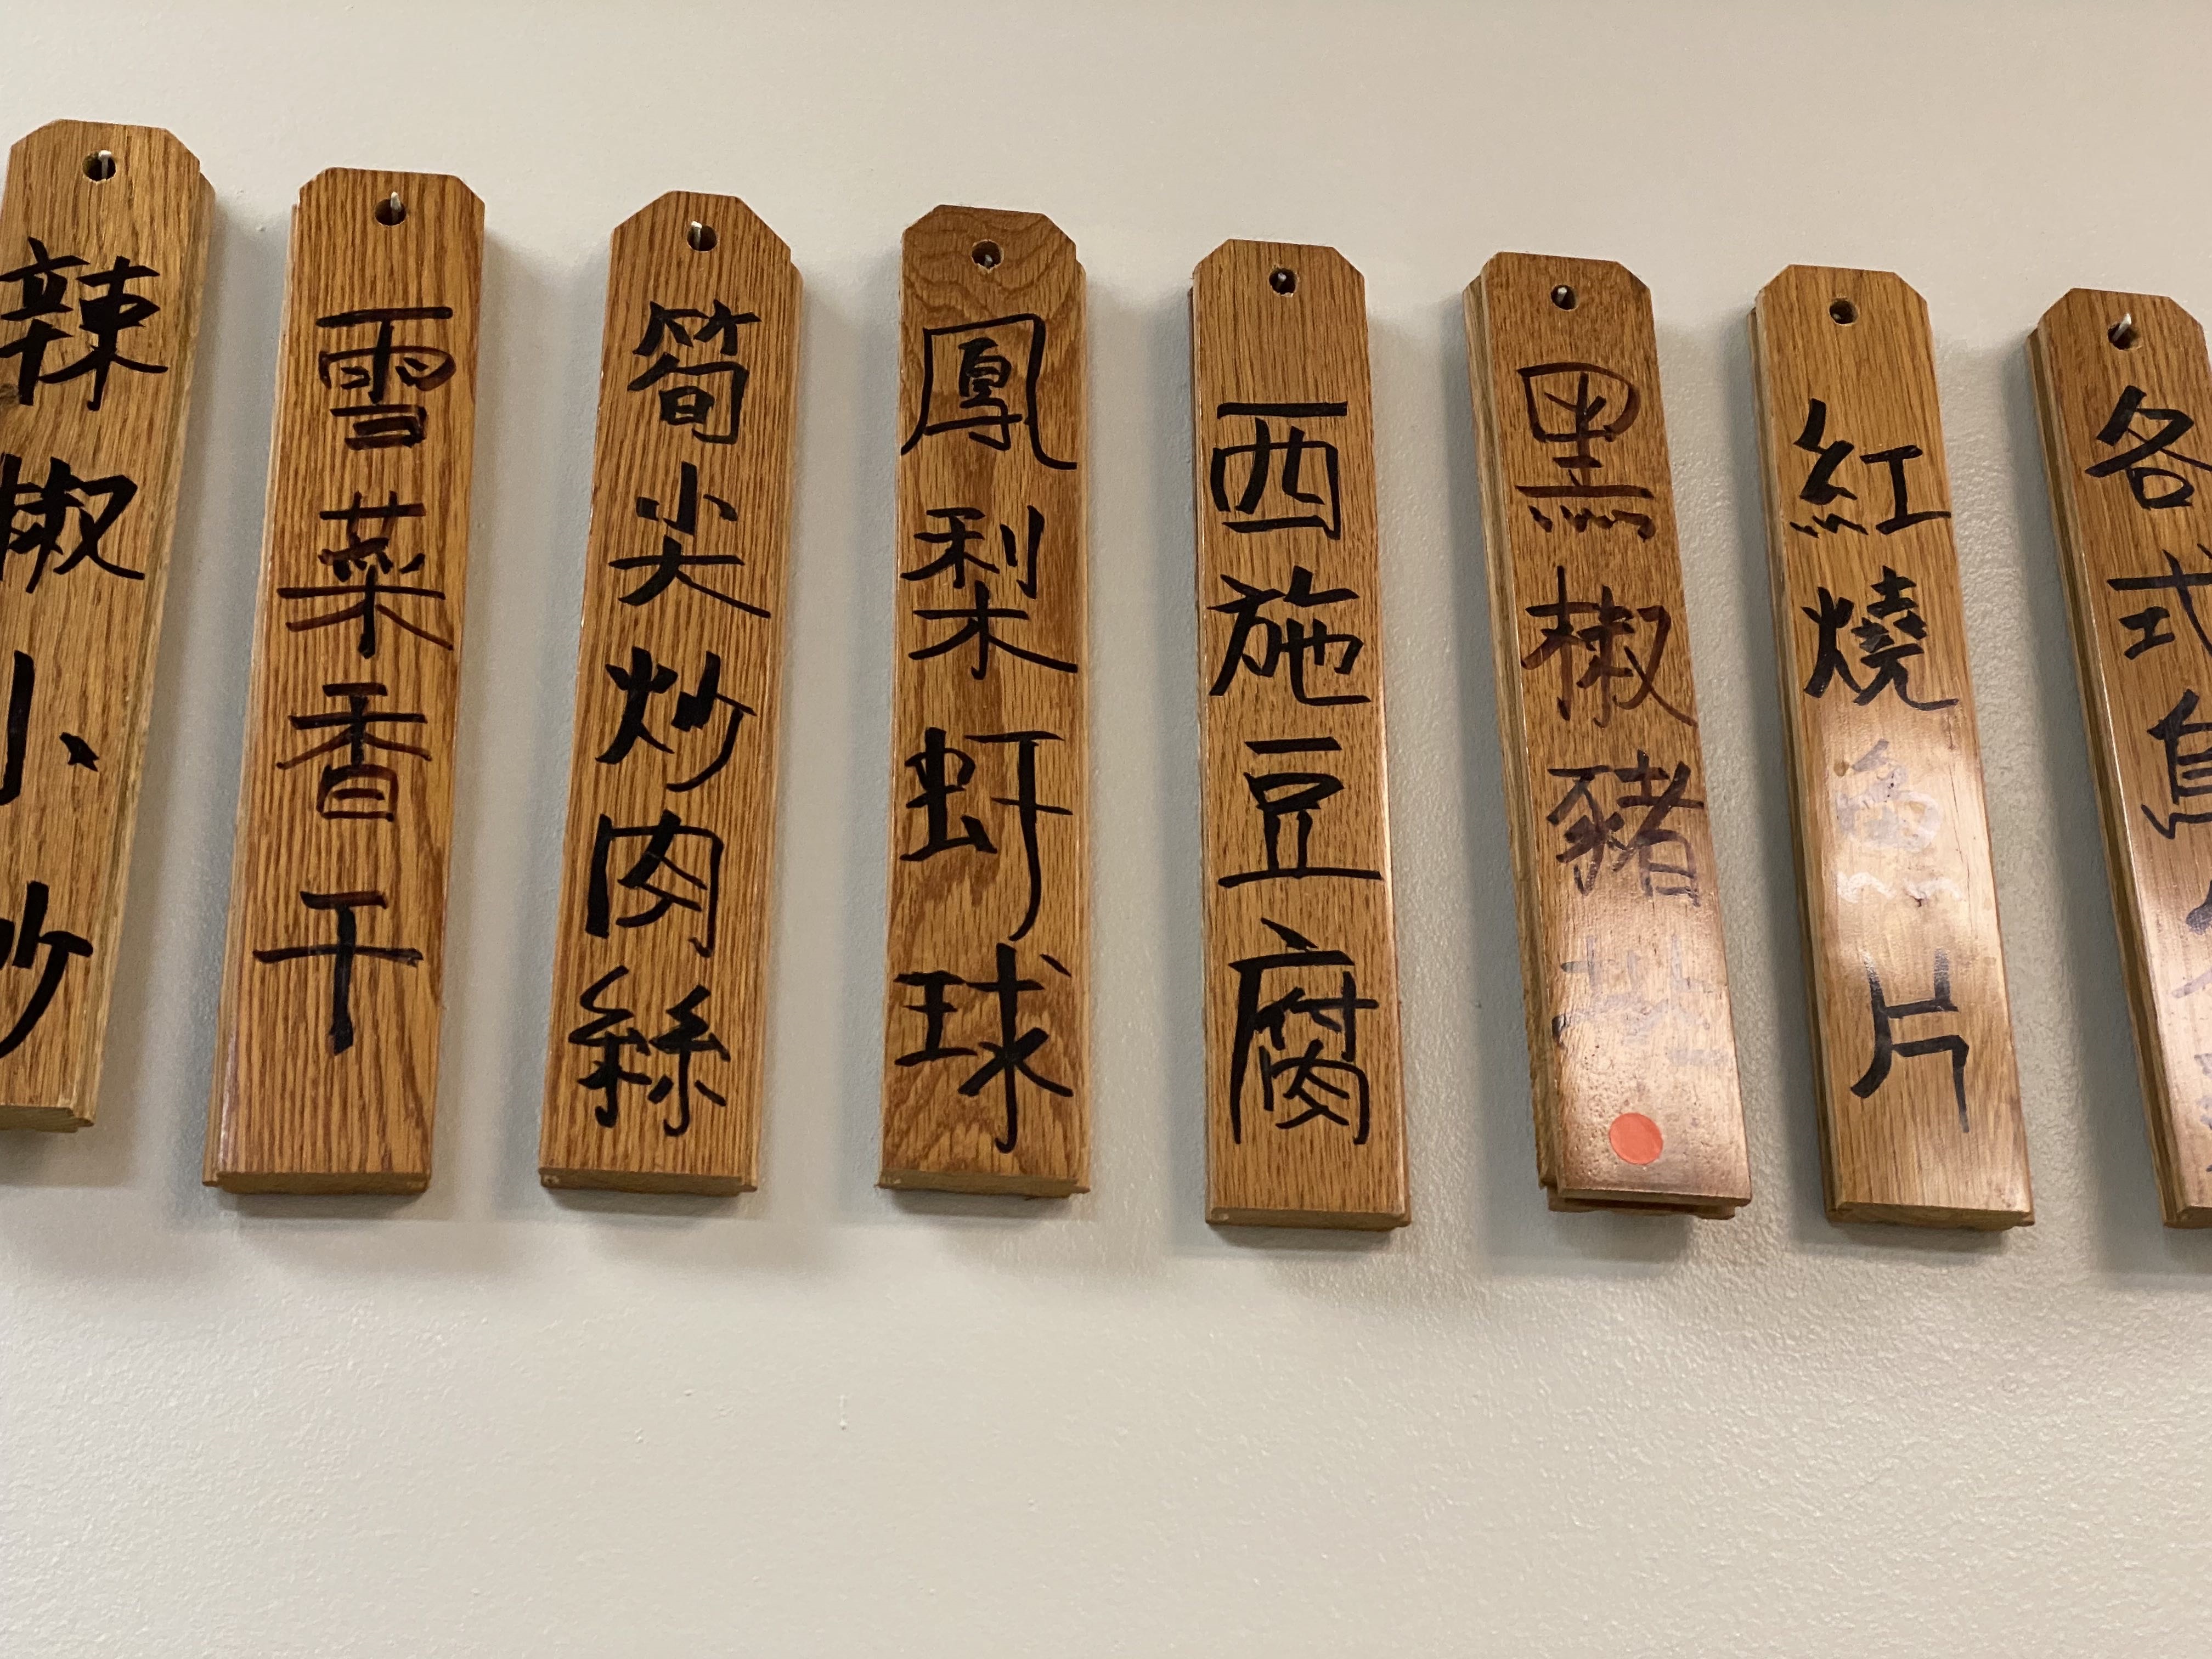 辣椒小炒
雪菜香干
筍尖炒肉絲
鳳梨虾球
西施豆腐
黑椒豬排
紅燒魚片
各式烏